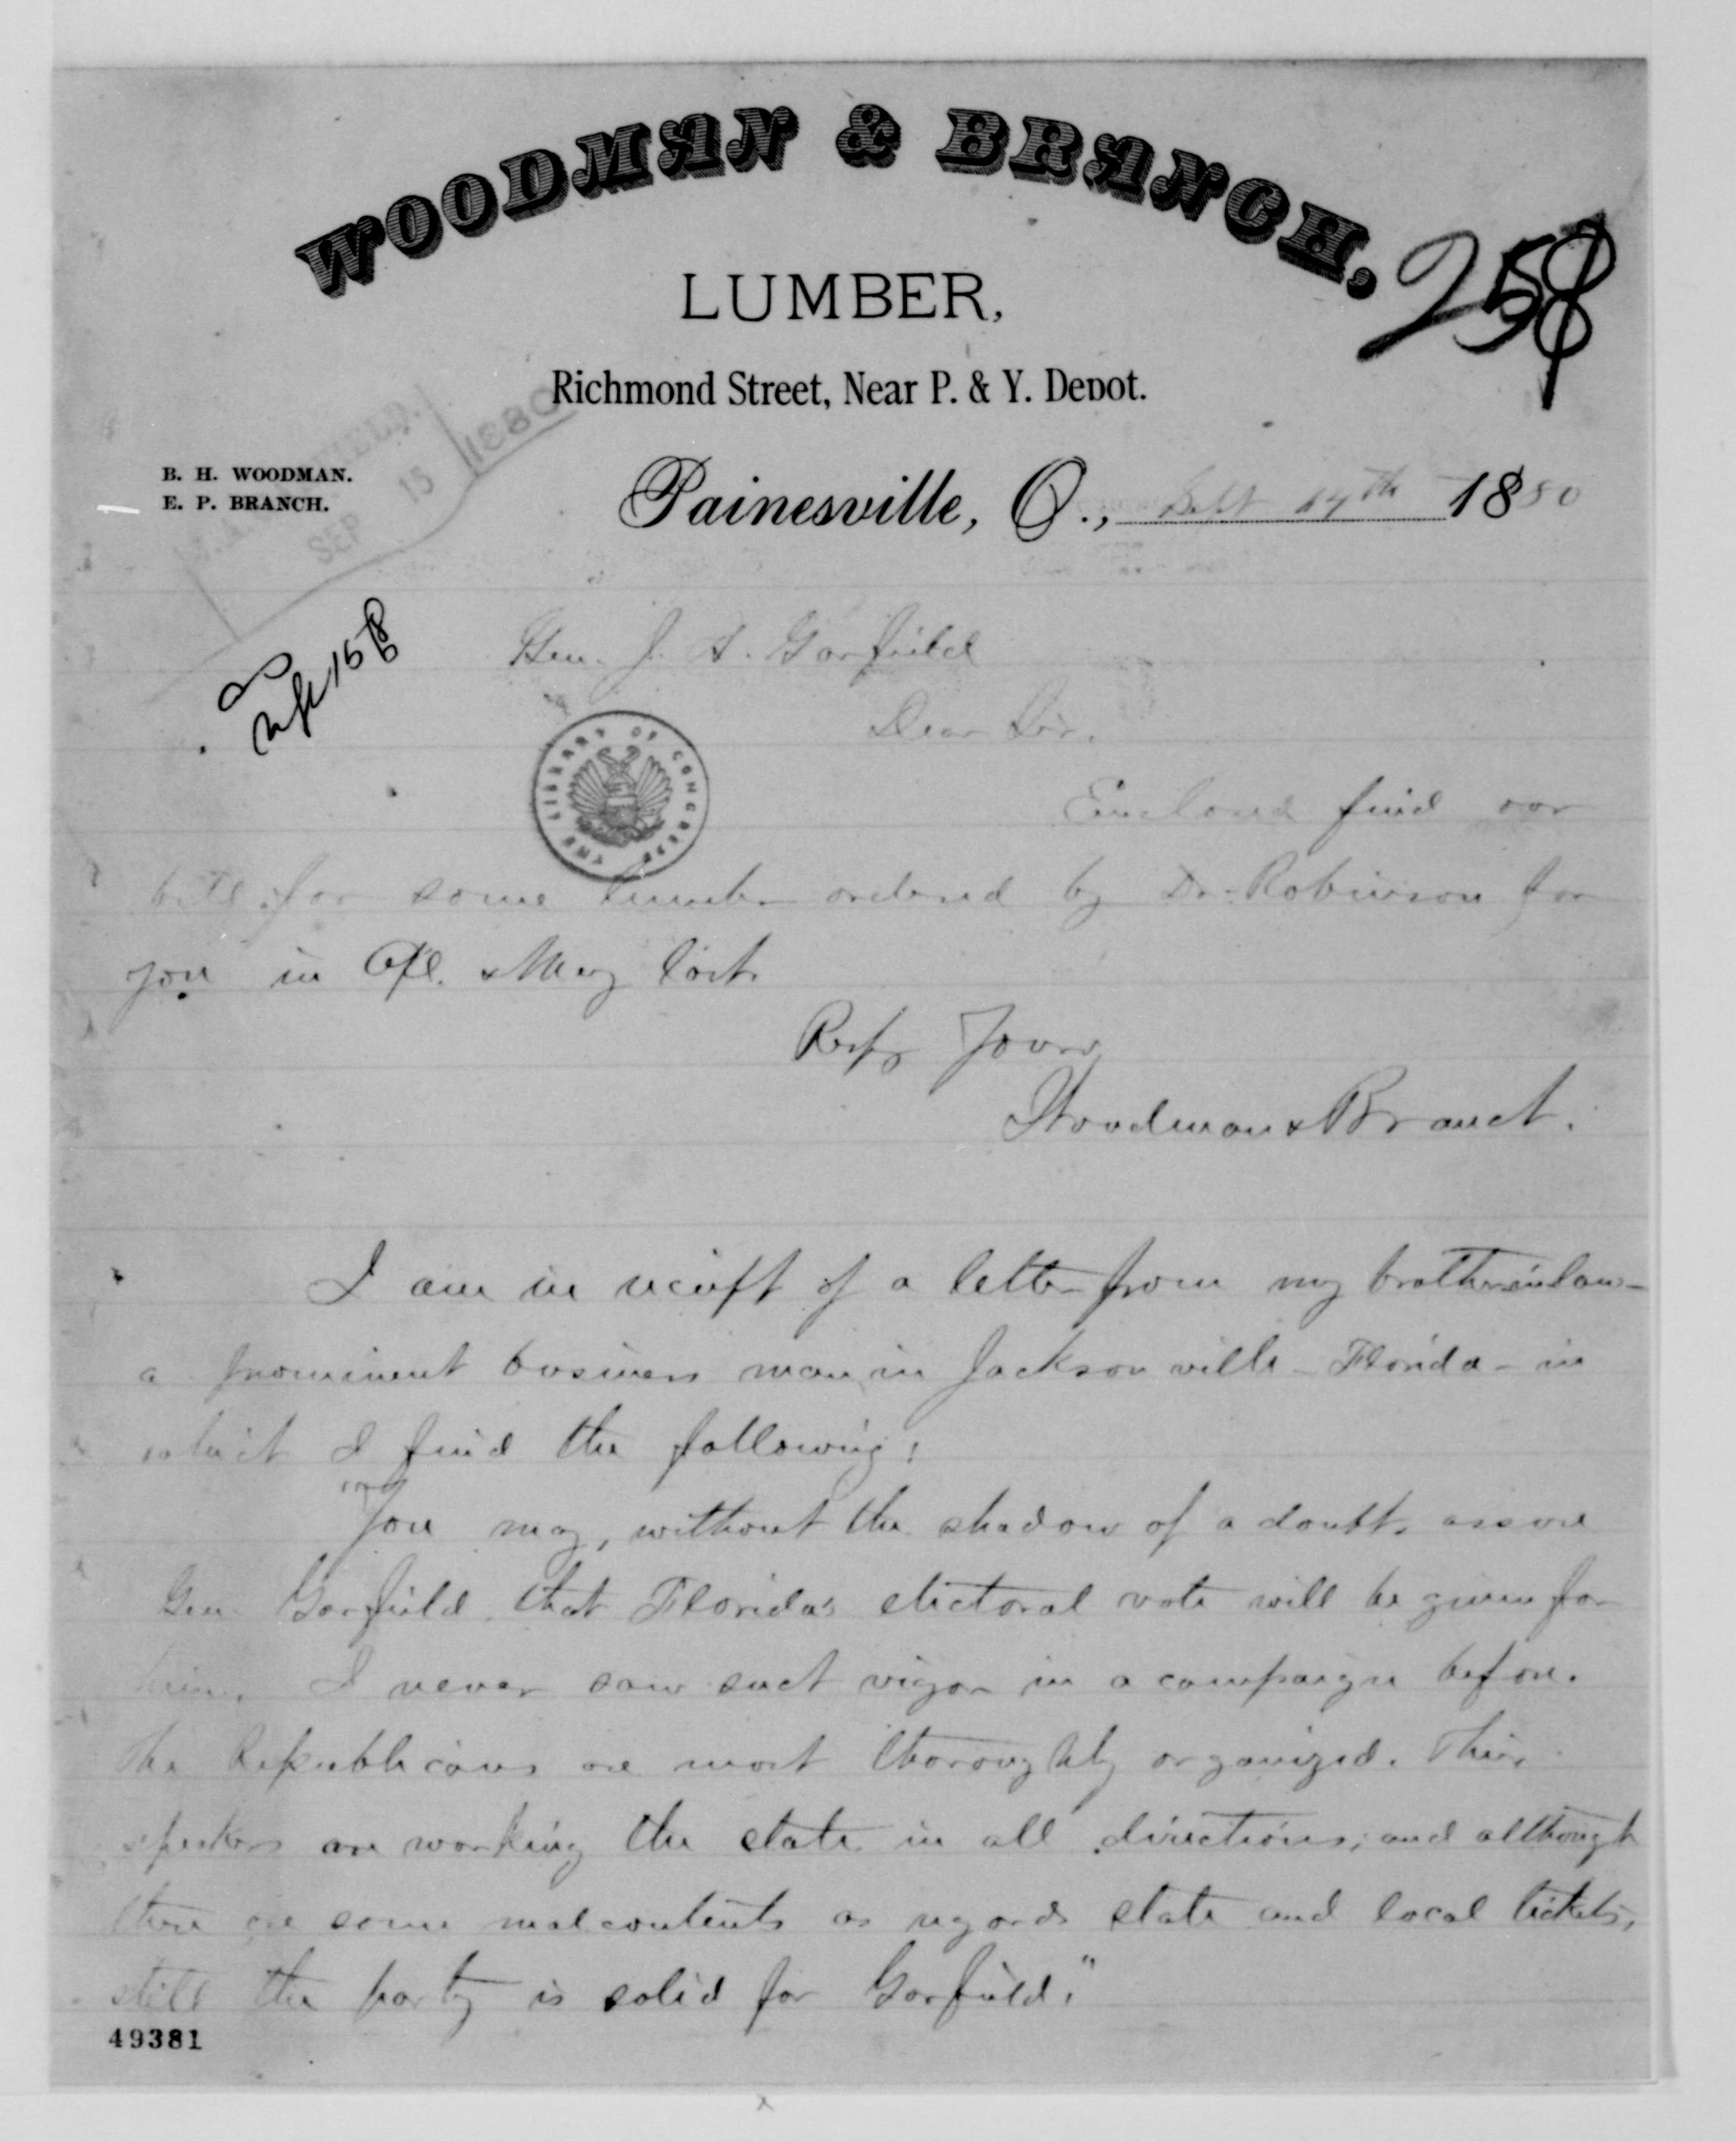 WOODMAN & BRANCH,
258
LUMBER,
Richmond Street, Near P. & Y. Depot.
1880
SEP 15
B. H. WOODMAN.
E. P. BRANCH.
Painesville, O., Sept 14th 1880
Gen. J. A. Garfield
Dear Sir.
THE LIBRARY OF CONGRESS
Enclosed find our
bill for some lumber ordered by Dr. Robinson for
you in Apl. & May last.
Respy Yours
Woodman & Branch.
I am in receipt of a letter from my brotherinlaw -
a prominent business man in Jacksonville - Florida - in
which I find the following:
"You may, without the shadow of a doubt, assure
Gen. Garfield, that Florida's electoral vote will be given for
him. I never saw such vigor in a campaign before.
The Republicans are most thoroughly organized. Their
speakers are working the state in all directions; and although
there are some malcontents as regards state and local tickets,
still the party is solid for Garfield."
49381